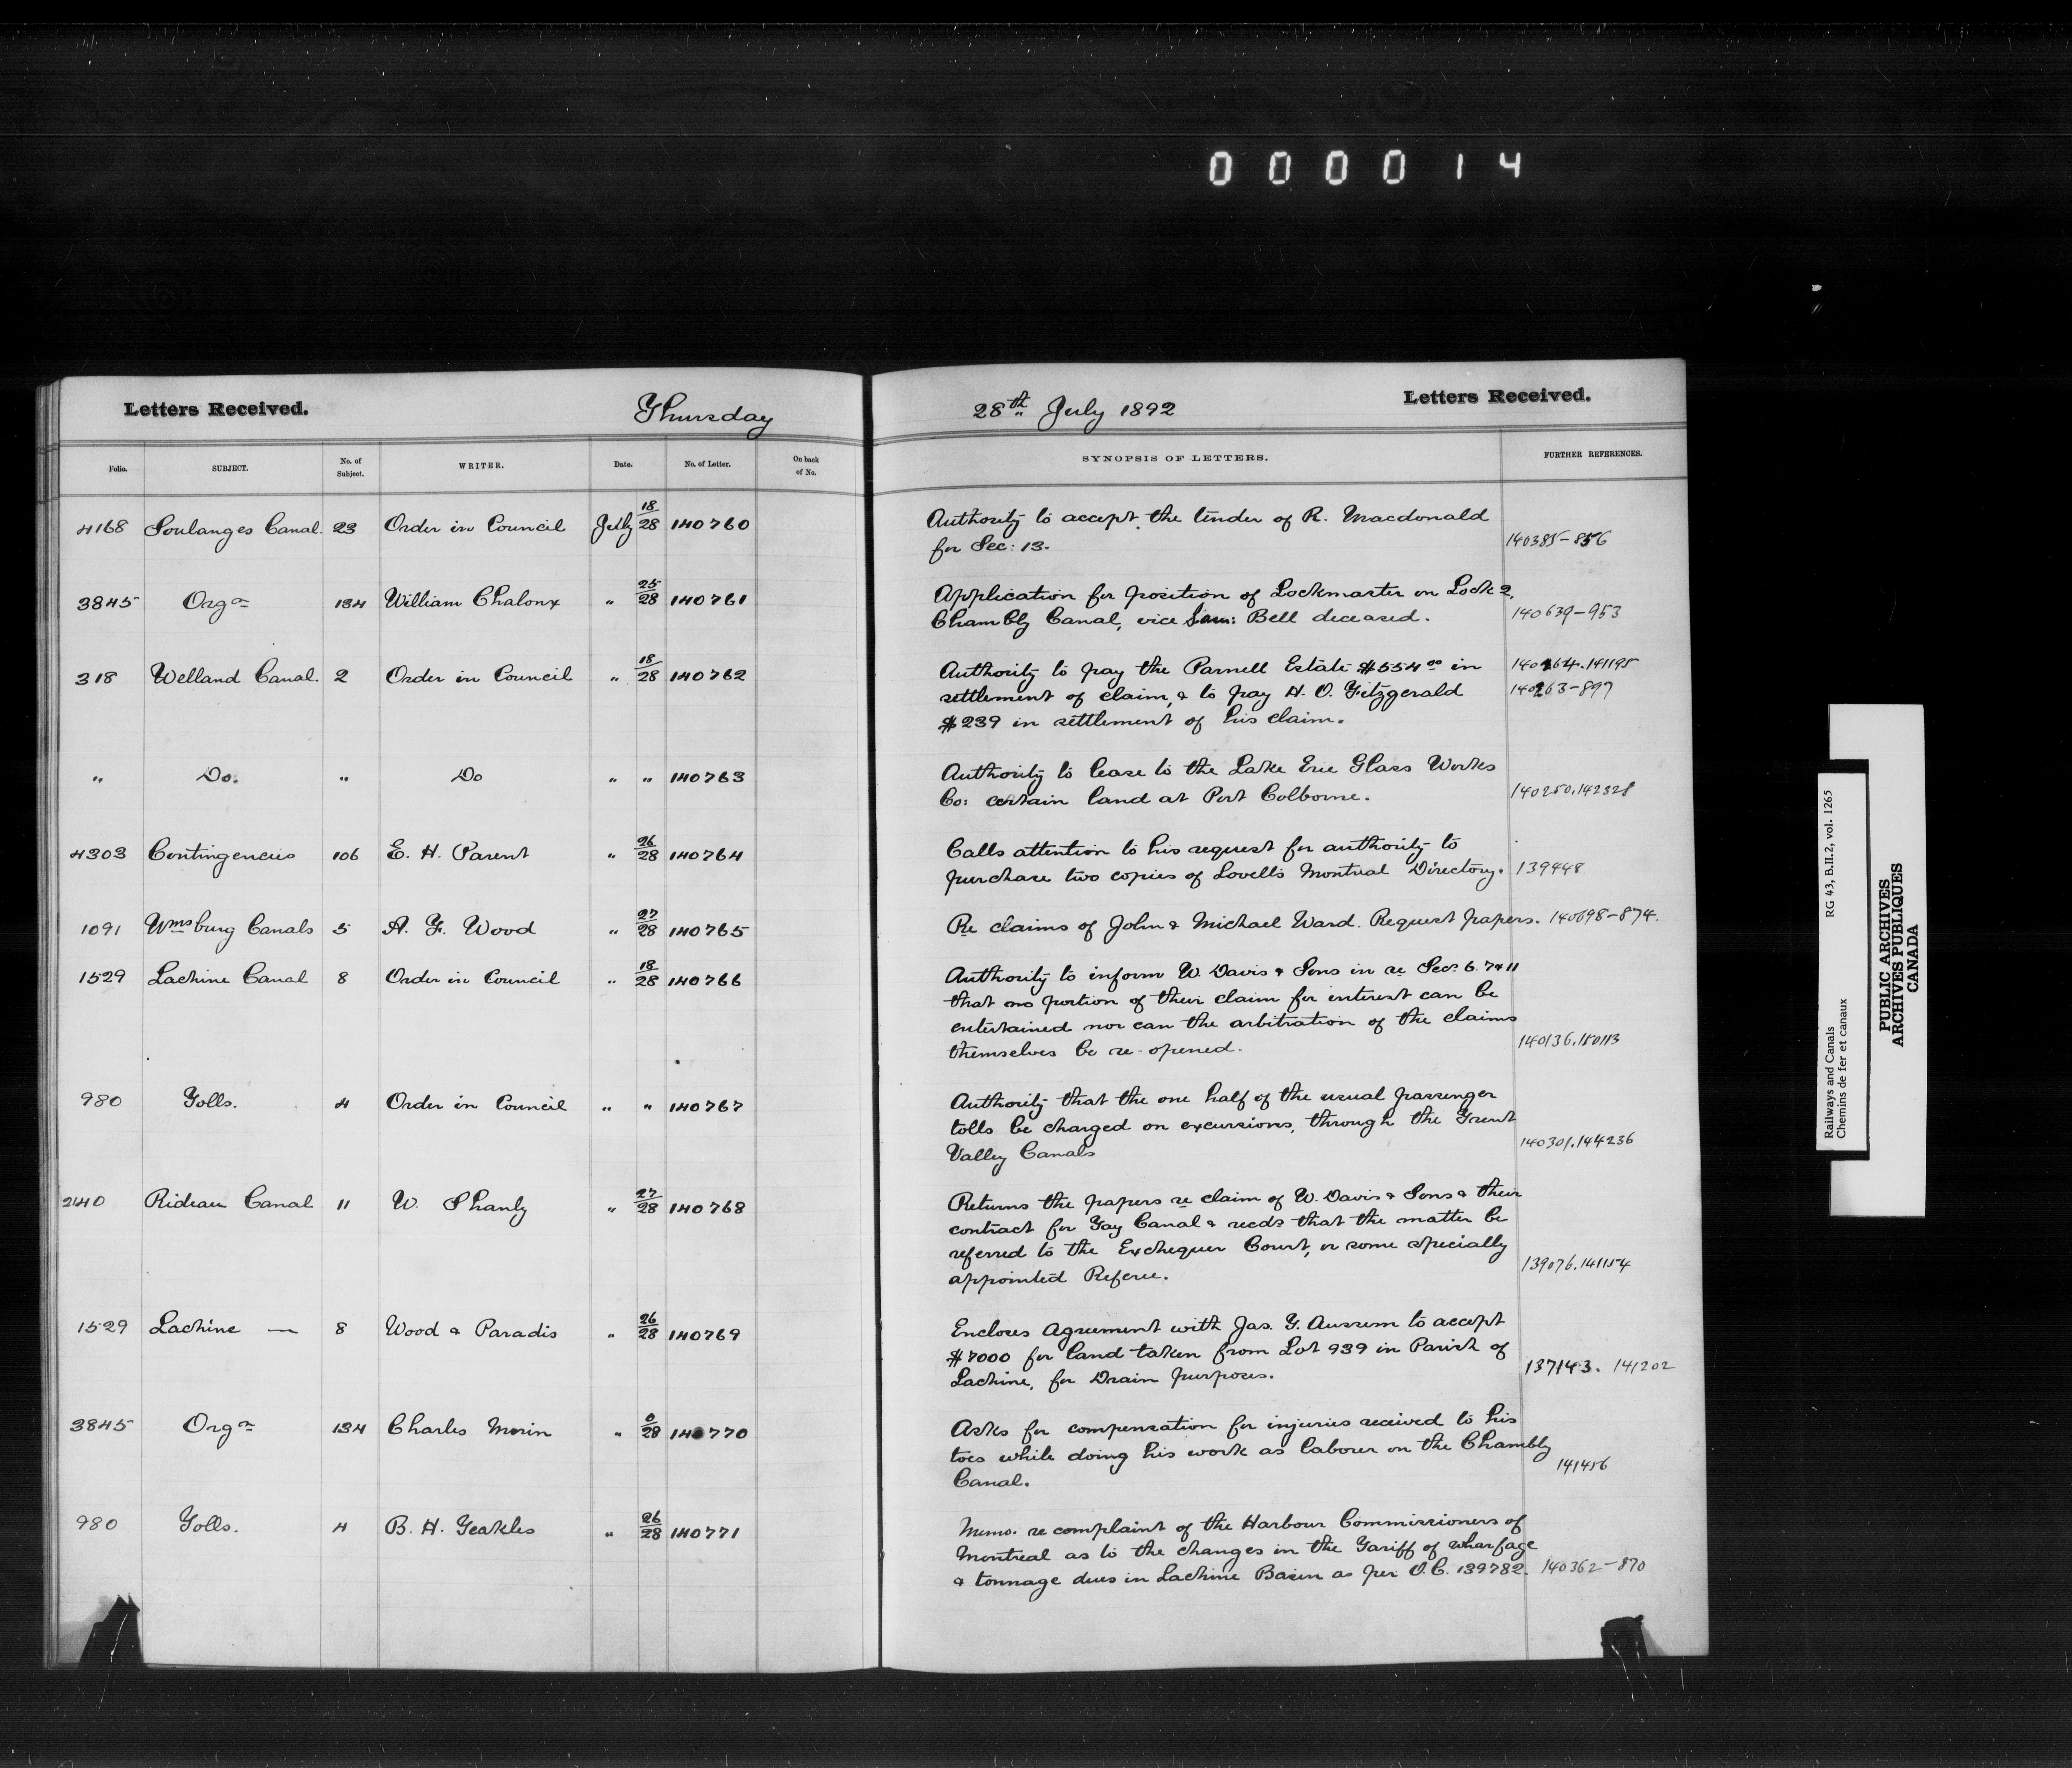 000014
Letters Received. Thursday 28th July 1892 Letters Received.
Folio. SUBJECT. No. of Subject. WRITER. Date. No. of Letter. On back of No. SYNOPSIS OF LETTERS. FURTHER REFERENCES.
4168 Soulanges Canal. 23 Order in Council July 18/28 140760 Authority to accept the tender of R. Macdonald
for Sec: 13. 140385-856
3845 Orgn 134 William Chalonx " 25/28 140761 Application for position of Lockmaster on Lock 2,
Chambly Canal, vice Sam: Bell deceased. 140639-953
318 Welland Canal. 2 Order in Council " 18/28 140762 Authority to pay the Parnell Estate $554 00 in 140264.141195
settlement of claim, & to pay H. O. Fitzgerald 140263-897
$239 in settlement of his claim.
" Do. " Do " " 140763 Authority to lease to the Lake Erie Glass Works
Co: certain land at Port Colborne. 140250.142328
4303 Contingencies 106 E. H. Parent " 26/28 140764 Calls attention to his request for authority to
purchase two copies of Lovell's Montreal Directory. 139448
1091 Wmsburg Canals 5 A. F. Wood " 27/28 140765 Re claims of John & Michael Ward. Request papers. 140698-874.
1529 Lachine Canal 8 Order in Council " 18/28 140766 Authority to inform W. Davis & Sons in re Secs 6. 7 & 11
that no portion of their claim for interest can be
entertained nor can the arbitration of the claims
themselves be re-opened. 140136.150113
980 Tolls. 4 Order in Council " " 140767 Authority that the one half of the usual passenger
tolls be charged on excursions, through the Trent
Valley Canals 140301.144236
2140 Rideau Canal 11 W. Shanly " 27/28 140768 Returns the papers re claim of W. Davis & Sons & their
contract for Tay Canal & recds that the matter be
referred to the Exchequer Court, or some specially
appointed Referee. 139076.141154
1529 Lachine — 8 Wood & Paradis " 26/28 140769 Encloses Agreement with Jas. G. to accept
$7000 for land taken from Lot 939 in Parish of
Lachine, for Drain purposes. 137143. 141202
3845 Orgn 134 Charles Morin " 0/28 140770 Asks for compensation for injuries received to his
toes while doing his work as labourer on the Chambly
Canal. 141456
980 Tolls. 4 B. H. Teakles " 26/28 140771 Memo. re complaint of the Harbour Commissioners of
Montreal as to the changes in the Tariff of wharfage
& tonnage dues in Lachine Basin as per O.C. 139782. 140362-870
Railways and Canals RG 43, B.II.2, vol. 1265
Chemins de fer et canaux
PUBLIC ARCHIVES
ARCHIVES PUBLIQUES
CANADA